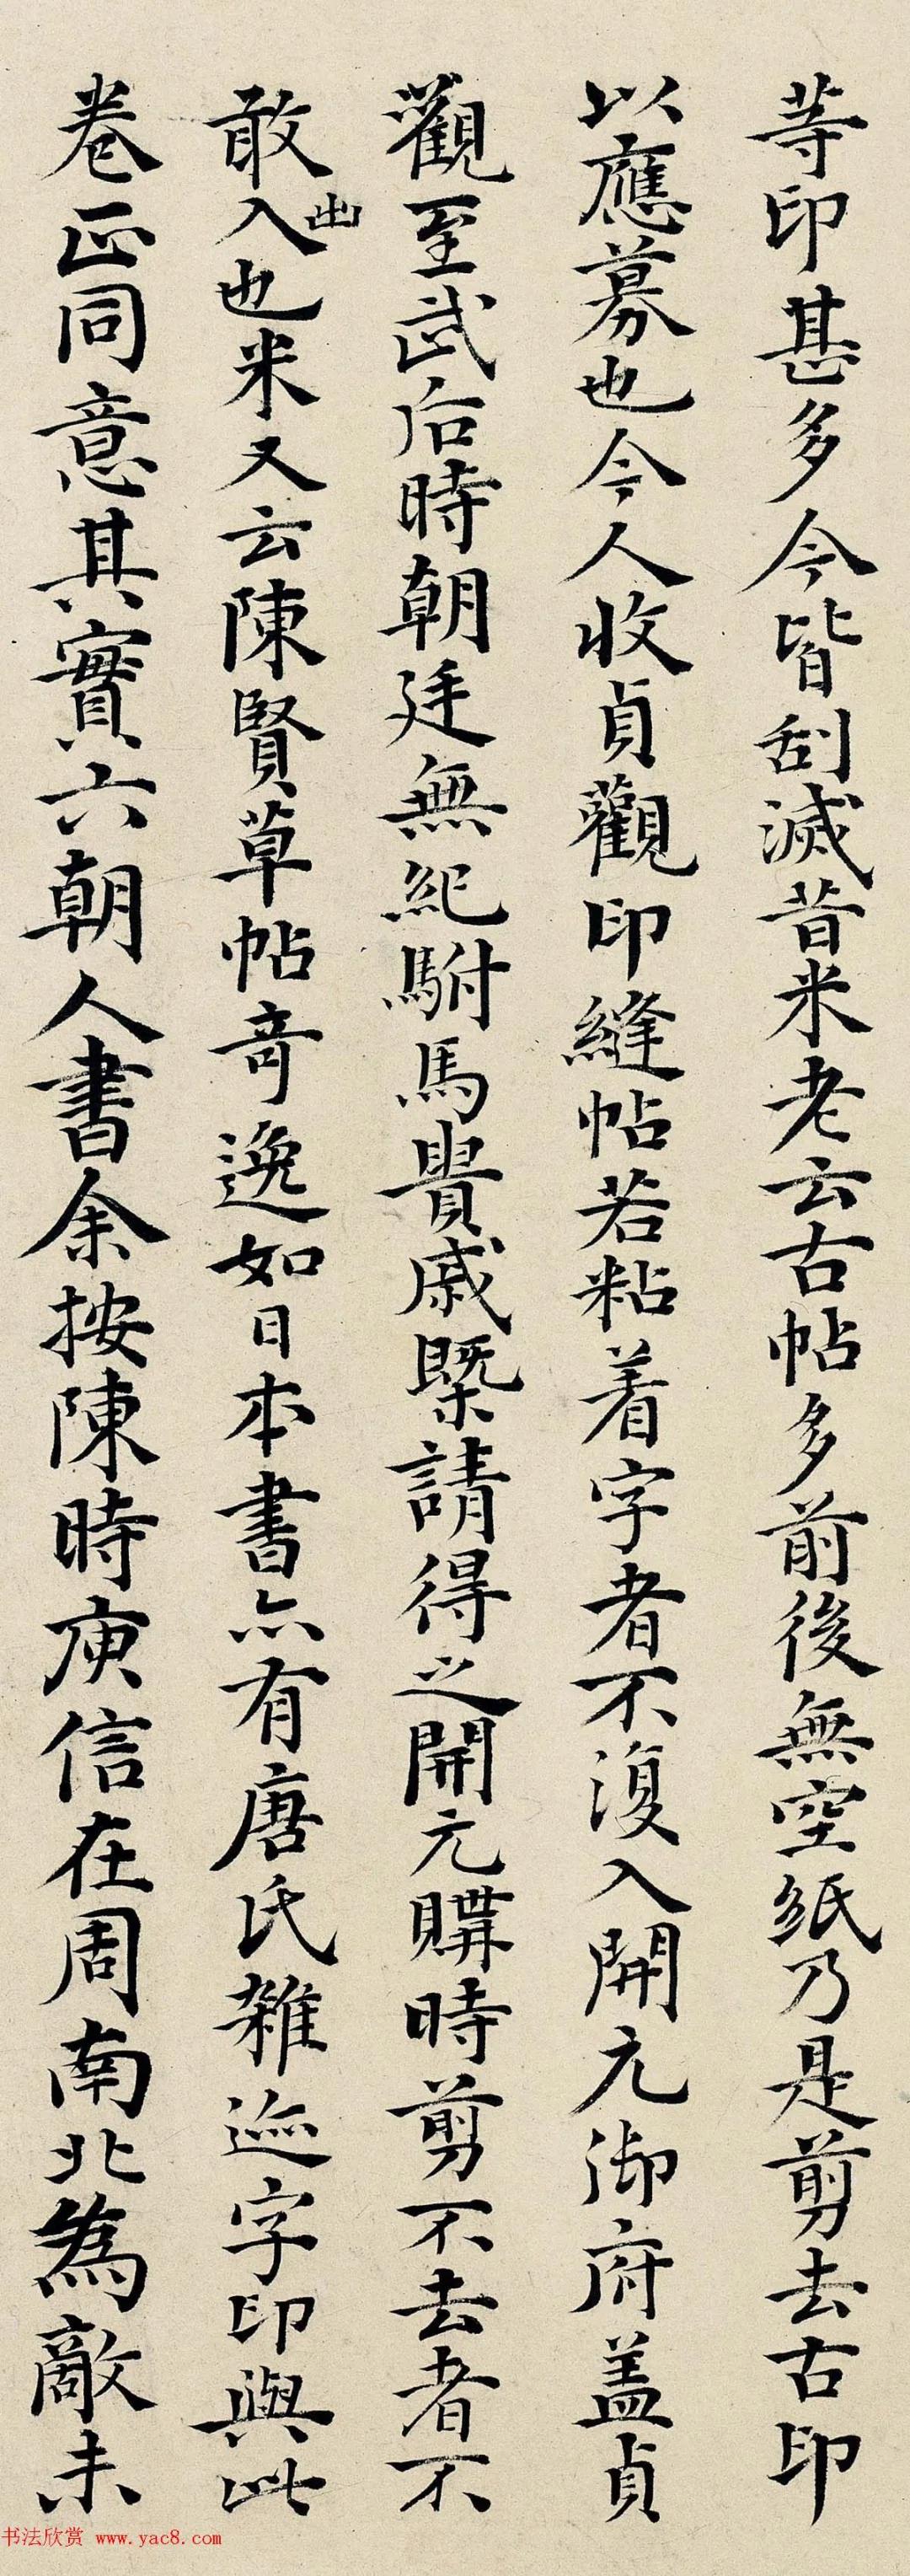 等印甚多今皆刮滅昔米老云古帖多前後無空紙乃是剪去古印
以應募也今人收貞觀印縫帖若粘着字者不復入開元御府盖貞
觀至武后時朝廷無紀駙馬貴戚暨請得之開元購時剪不去者不
敢入出也米又云陳賢草帖奇逸如日本書亦有唐氏雜迹字印與此
卷正同意其實六朝人書余按陳時庾信在周南北為敵未
书法欣赏 www.yac8.com